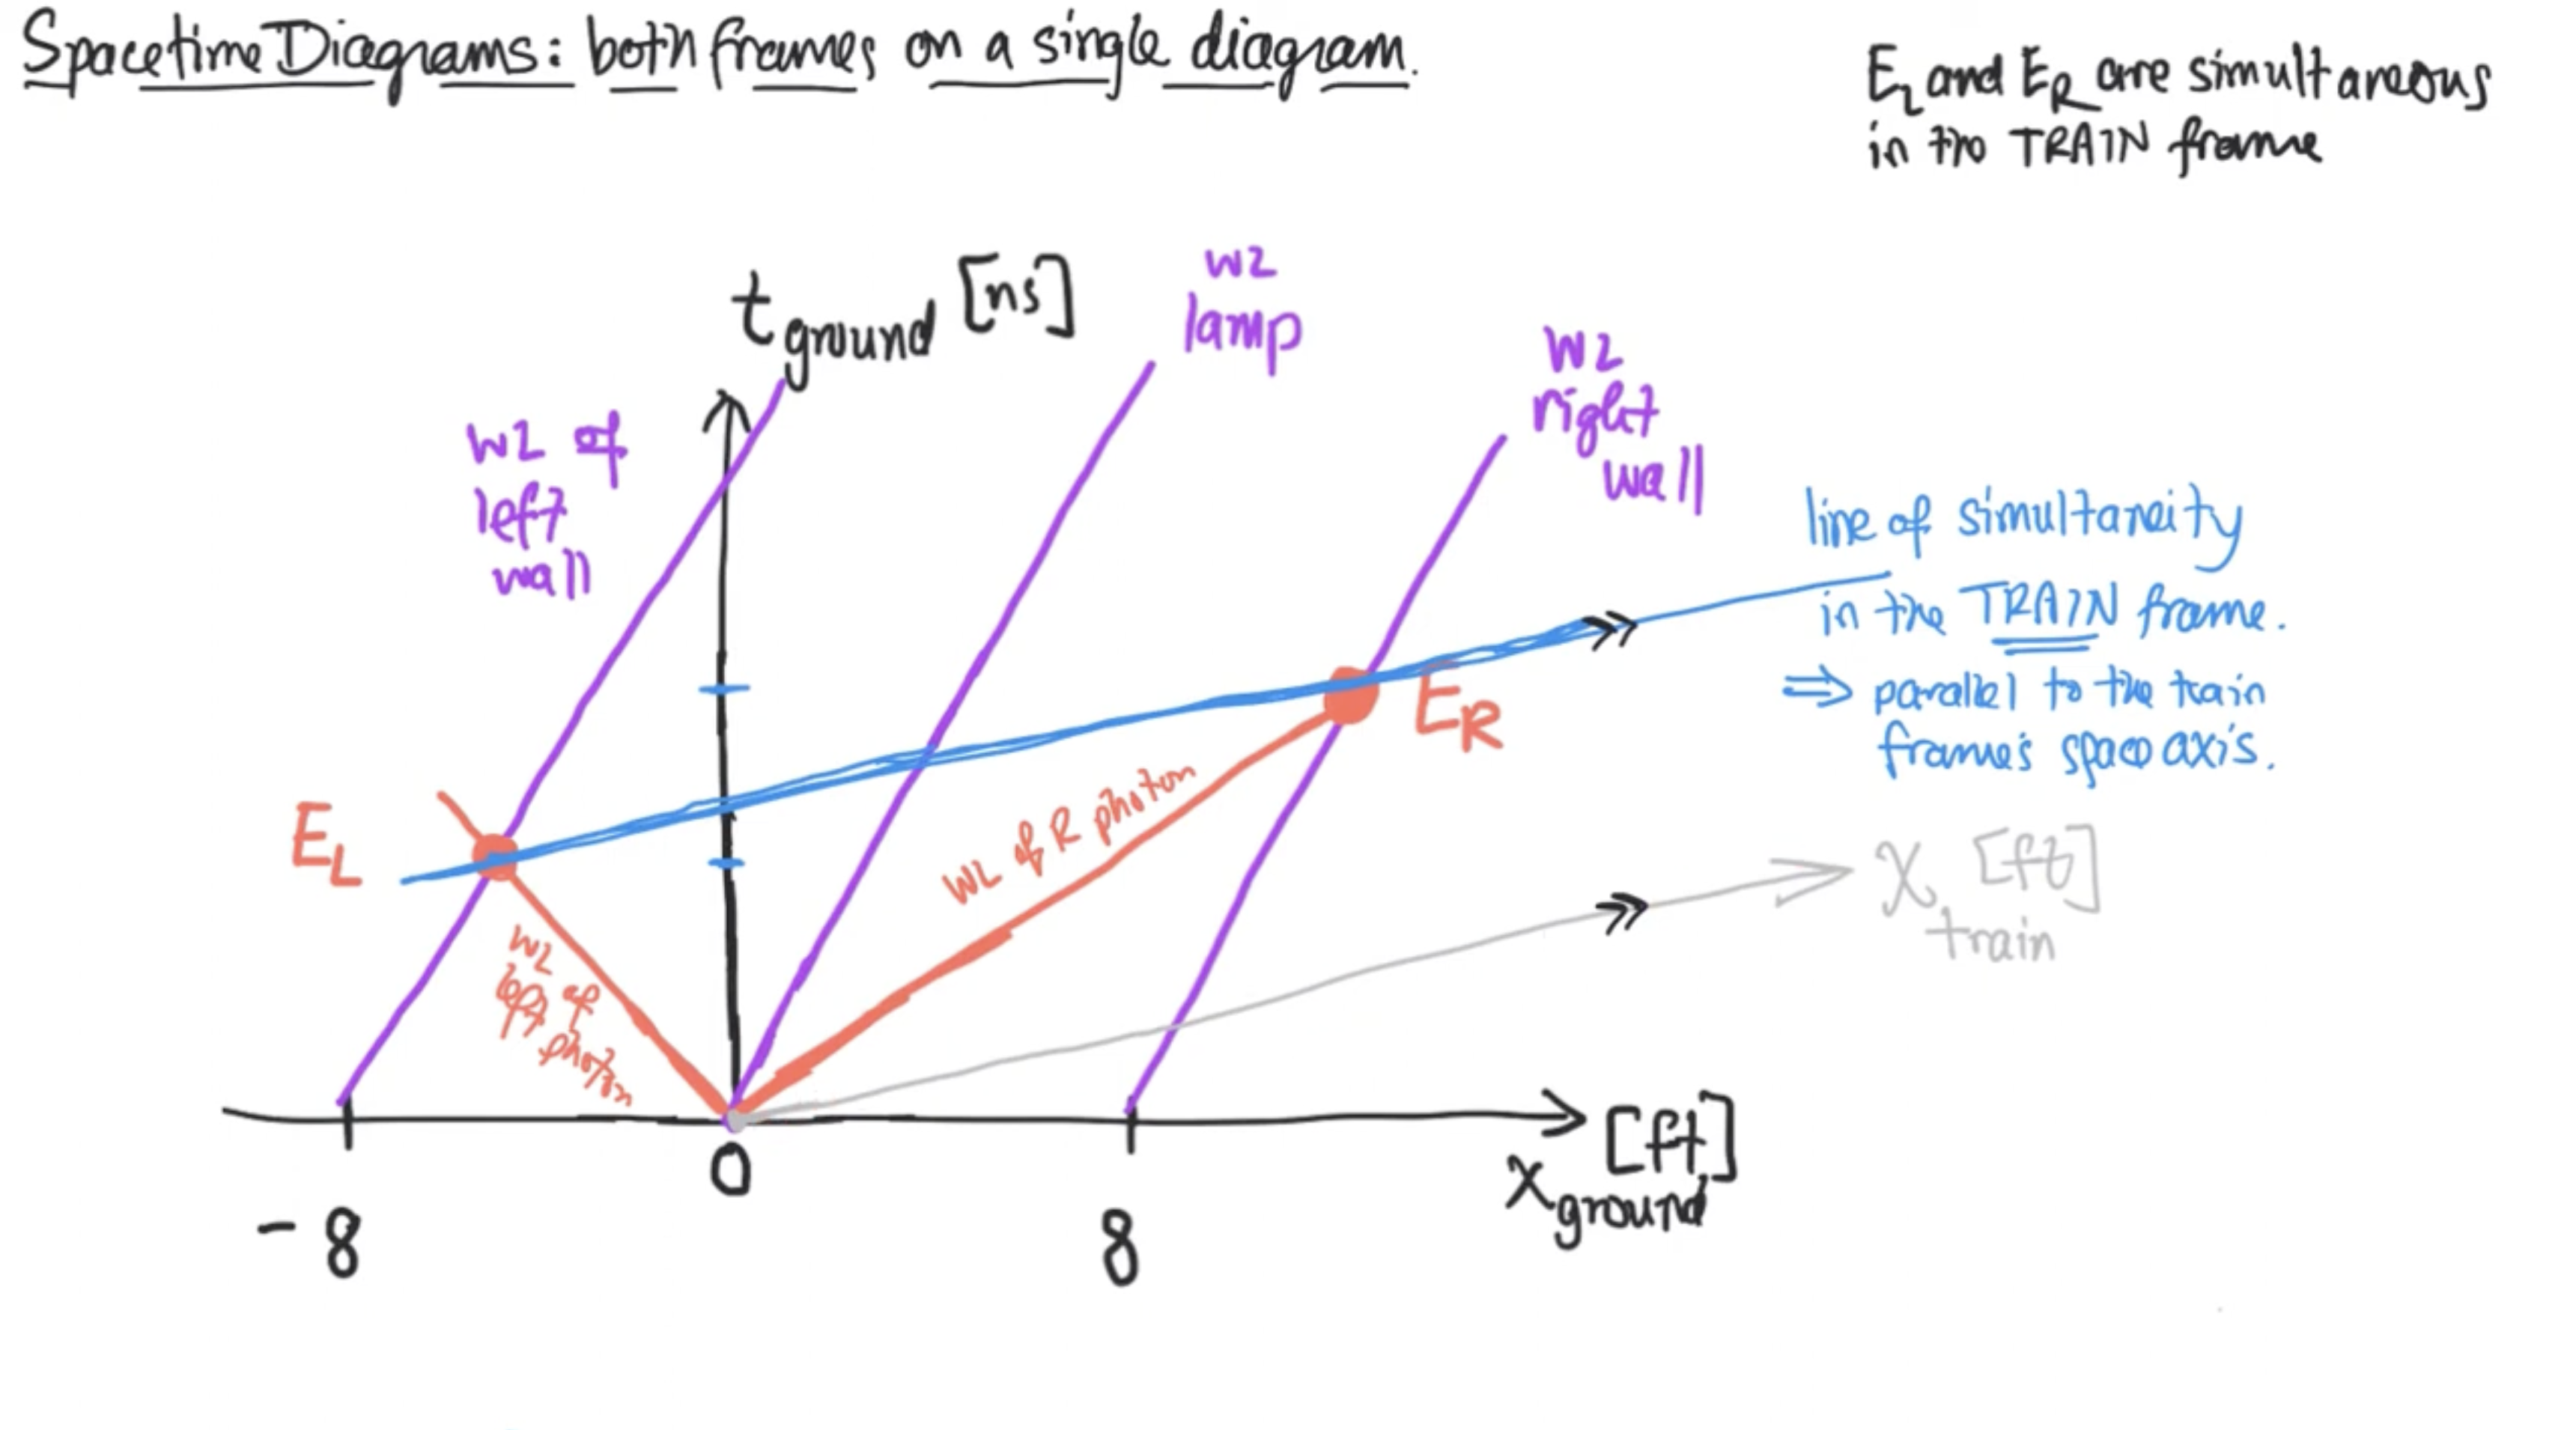 Spacetime Diagrams: both frames on a single diagram.
E_L and E_R are simultaneous
in the TRAIN frame
t_ground [ns]
WL
lamp
WL
right
wall
WL of
left
wall
line of simultaneity
in the TRAIN frame.
⇒ parallel to the train
frame's space axis.
E_R
E_L
WL of R photon
WL of
left
photon
x_train [ft]
x_ground [ft]
-8
0
8